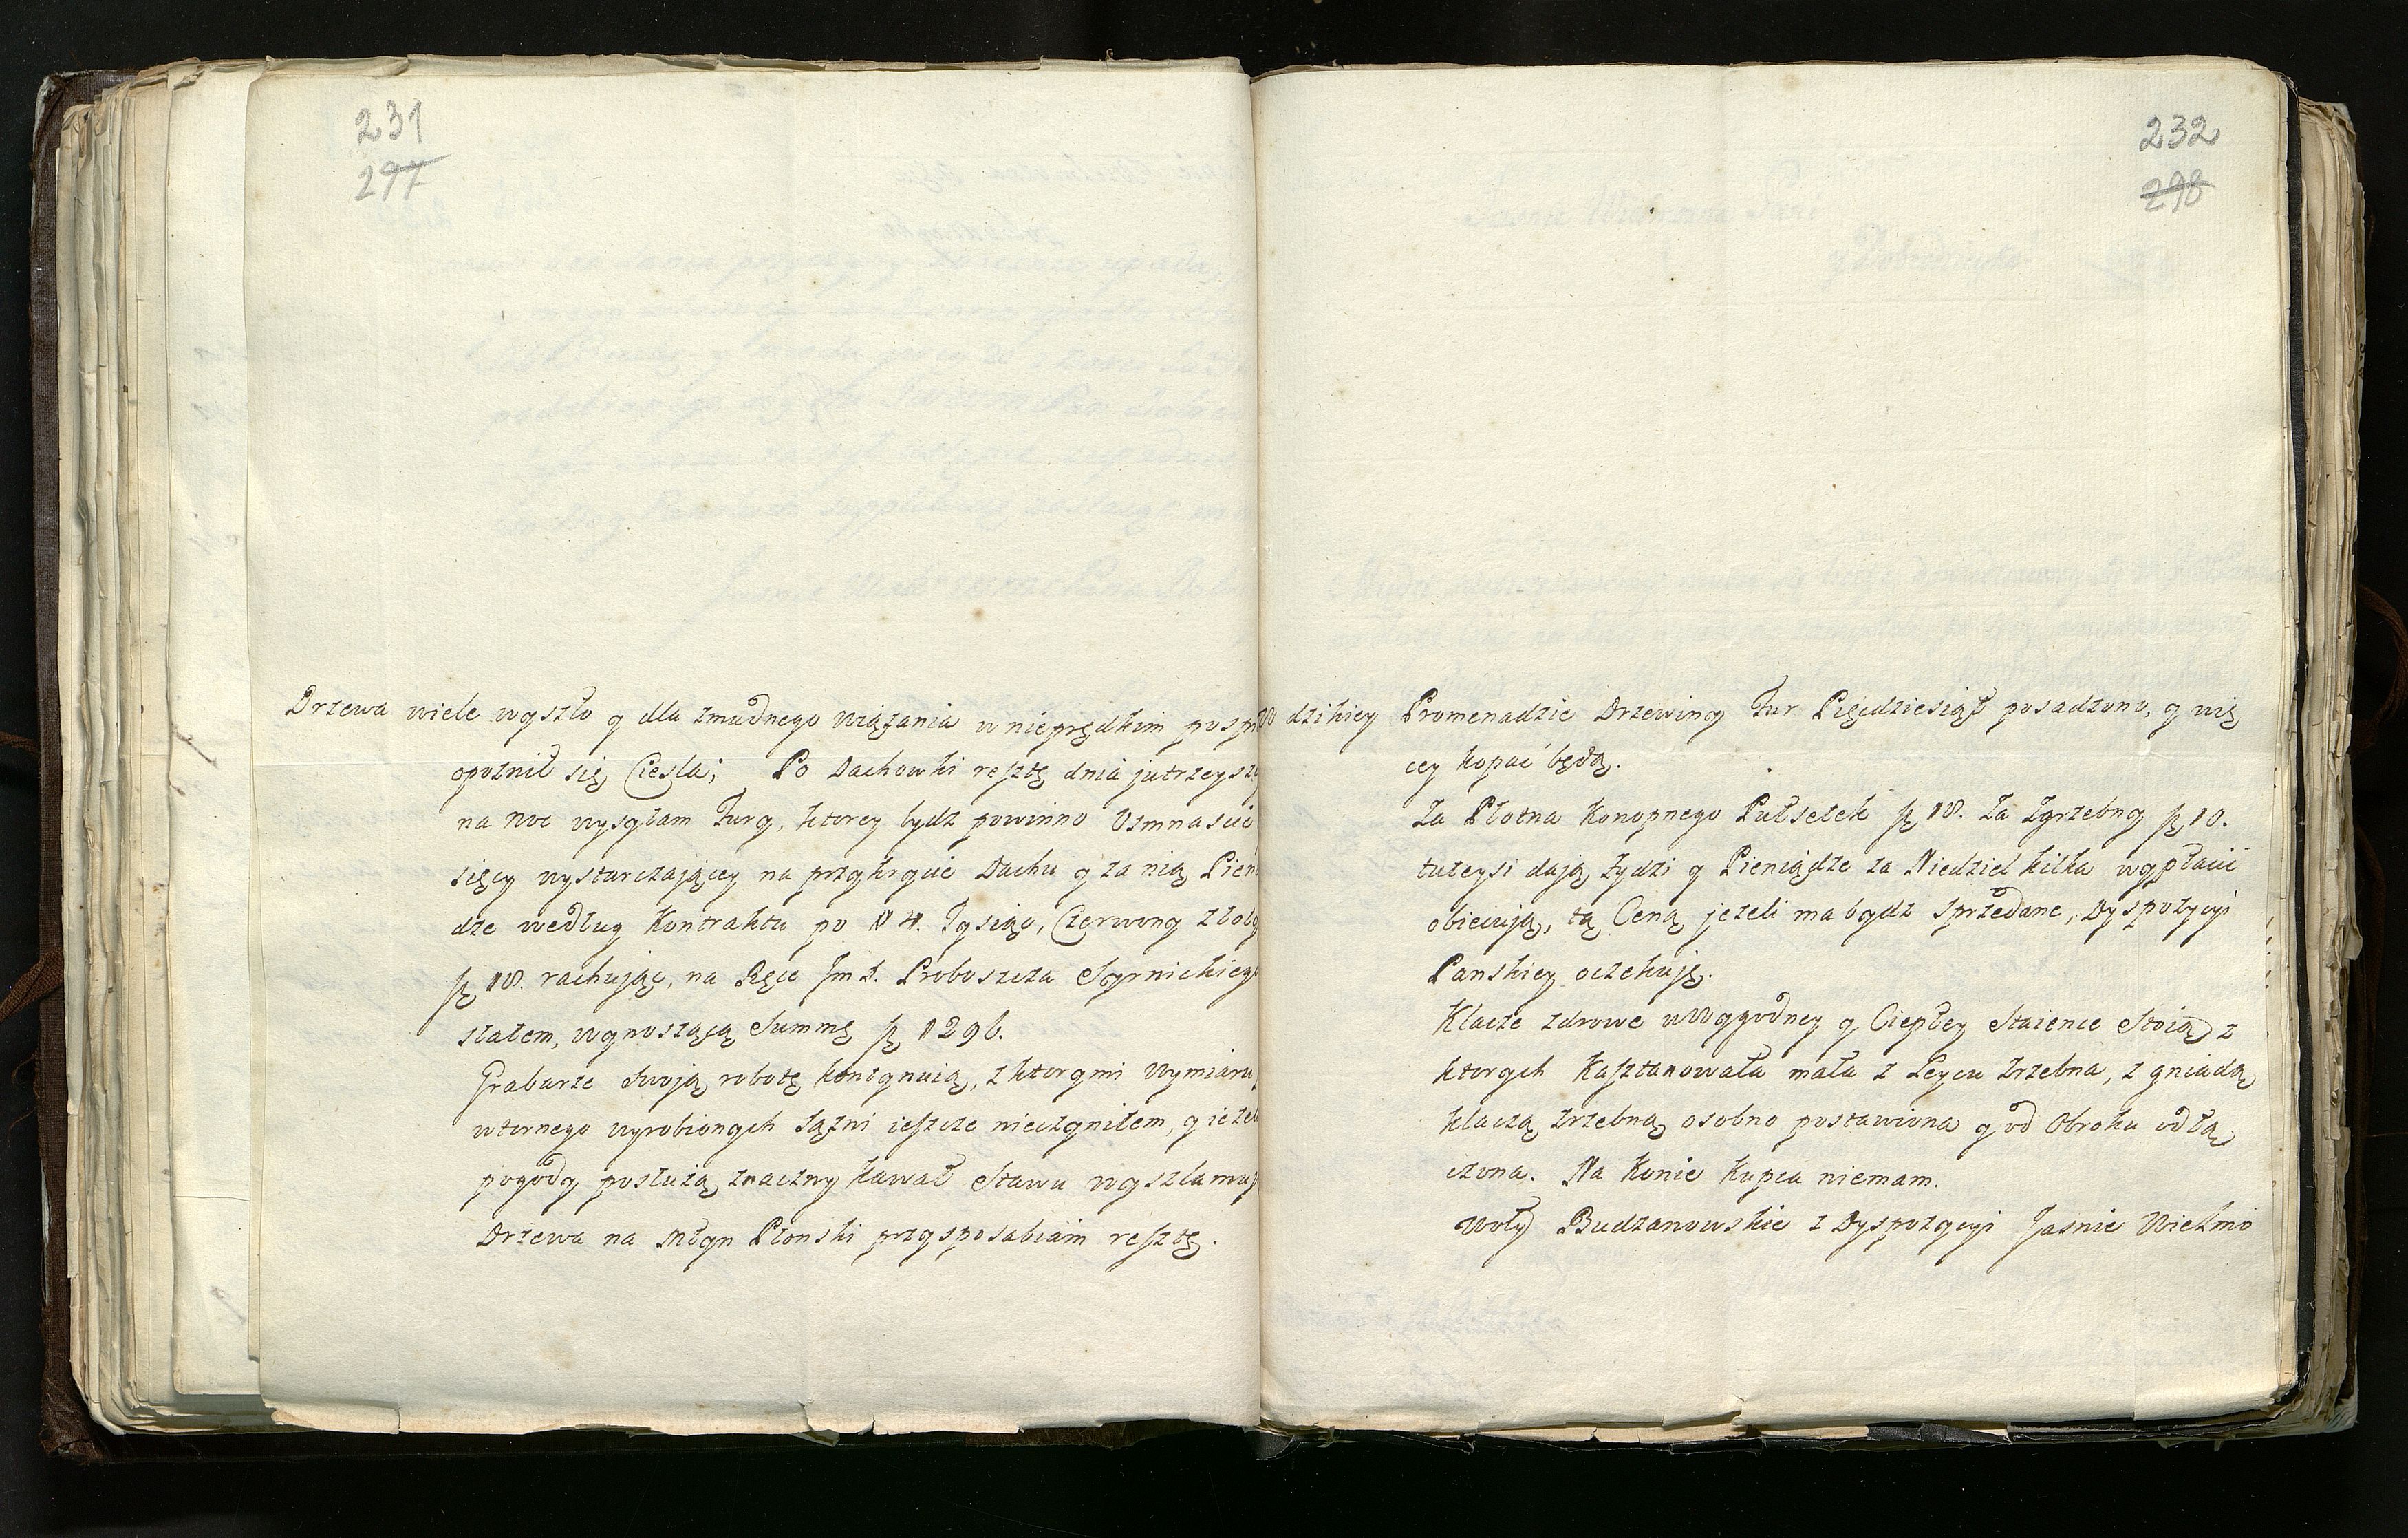 231
297
Drzewa wiele wyszło y dla zmudnego wiązania w nieprędkim posp
opoznił się Ciesla; Po Dachowki resztę dnia jutrzeysz
na noc wysyłam Fury, ktorey bydz powinno Osmnascie
sięcy wystarczaiącey na przykrycie Dachu y za nią Pien
dze według Kontraktu po # 4. Tysiąc, Czerwony złoty
fl 18. rachując, na Ręce Jm X. Proboszcza Syrnickieg
słałem, wynoszącą Summę fl 1296.
Grabarze swoją robotę kontynuią, z ktorymi wymiaru
wtornego wyrobionych Sążni ieszcze nieczyniłem, y ieżel
pogody posłużą, znaczny kawał Stawu wyszlamuj
Drzewa na Młyn Płonski przysposabiam resztę.
232
298
W dzikiey Promenadzie Drzewiny Fur Pięćdziesiąt posadzono, y wię
cey kopać będą.
Za Płotna Konopnego Pułsetek fl 18. Za Zgrzebny fl 10.
tuteysi dają Żydzi y Pieniądze za Niedziel kilka wypłacić
obiecują, tą Ceną jeżeli ma bydz sprzedane, Dyspozycyi
Panskiey oczekuję.
Klacze zdrowe w Wygodney y Ciepłey Staience Stoią, z
ktorych Kasztanowata mała z Leycu zrzebna, z gniadą
klaczą zrzebną osobno postawiona y od Obroku odłą
czona. Na Konie Kupca niemam.
Woły Budzanowskie z Dyspozycyi Jasnie Wielmo